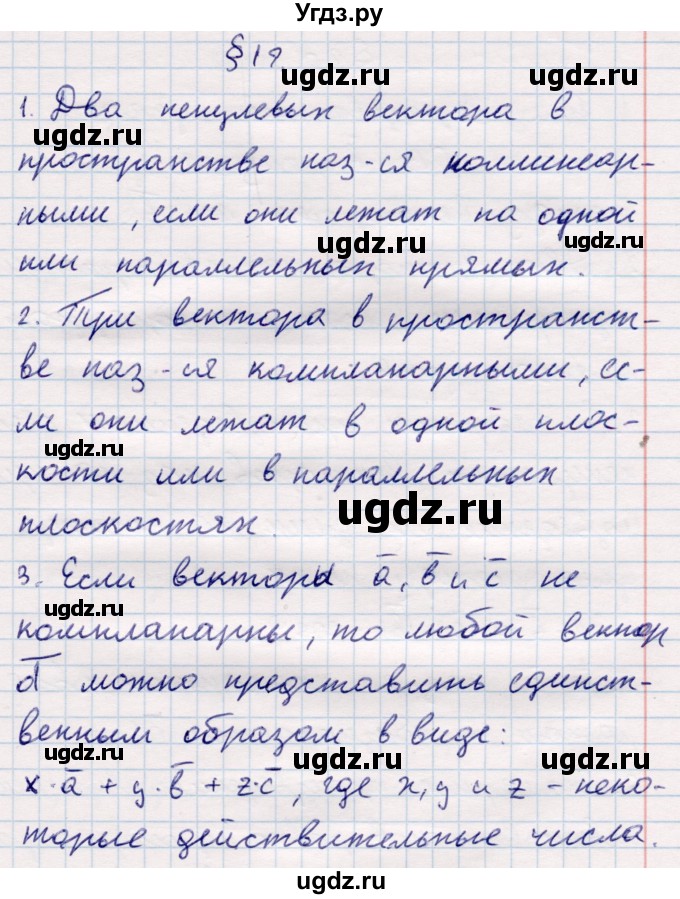 Угдз.ру
§ 19
1. Два ненулевых вектора в
ugdz.ru ugdz.ru
пространстве наз-ся коллинеар-
ugdz.ru
ными, если они лежат на одной
ugdz.ru ugdz.ru
или параллельных прямых.
2. Три вектора в пространст-
ugdz.ru
ве наз-ся компланарными, ес-
ли они лежат в одной плос-
ugdz.ru
кости или в параллельных
ugdz.ru
плоскостях.
3. Если векторы a̅, b̅ и c̅ не
ugdz.ru ugdz.ru
компланарны, то любой вектор
d̅ можно представить единст-
ugdz.ru
венным образом в виде:
ugdz.ru ugdz.ru
x·a̅ + y·b̅ + z·c̅, где x, y и z – неко-
ugdz.ru
торые действительные числа.
ugdz.ru